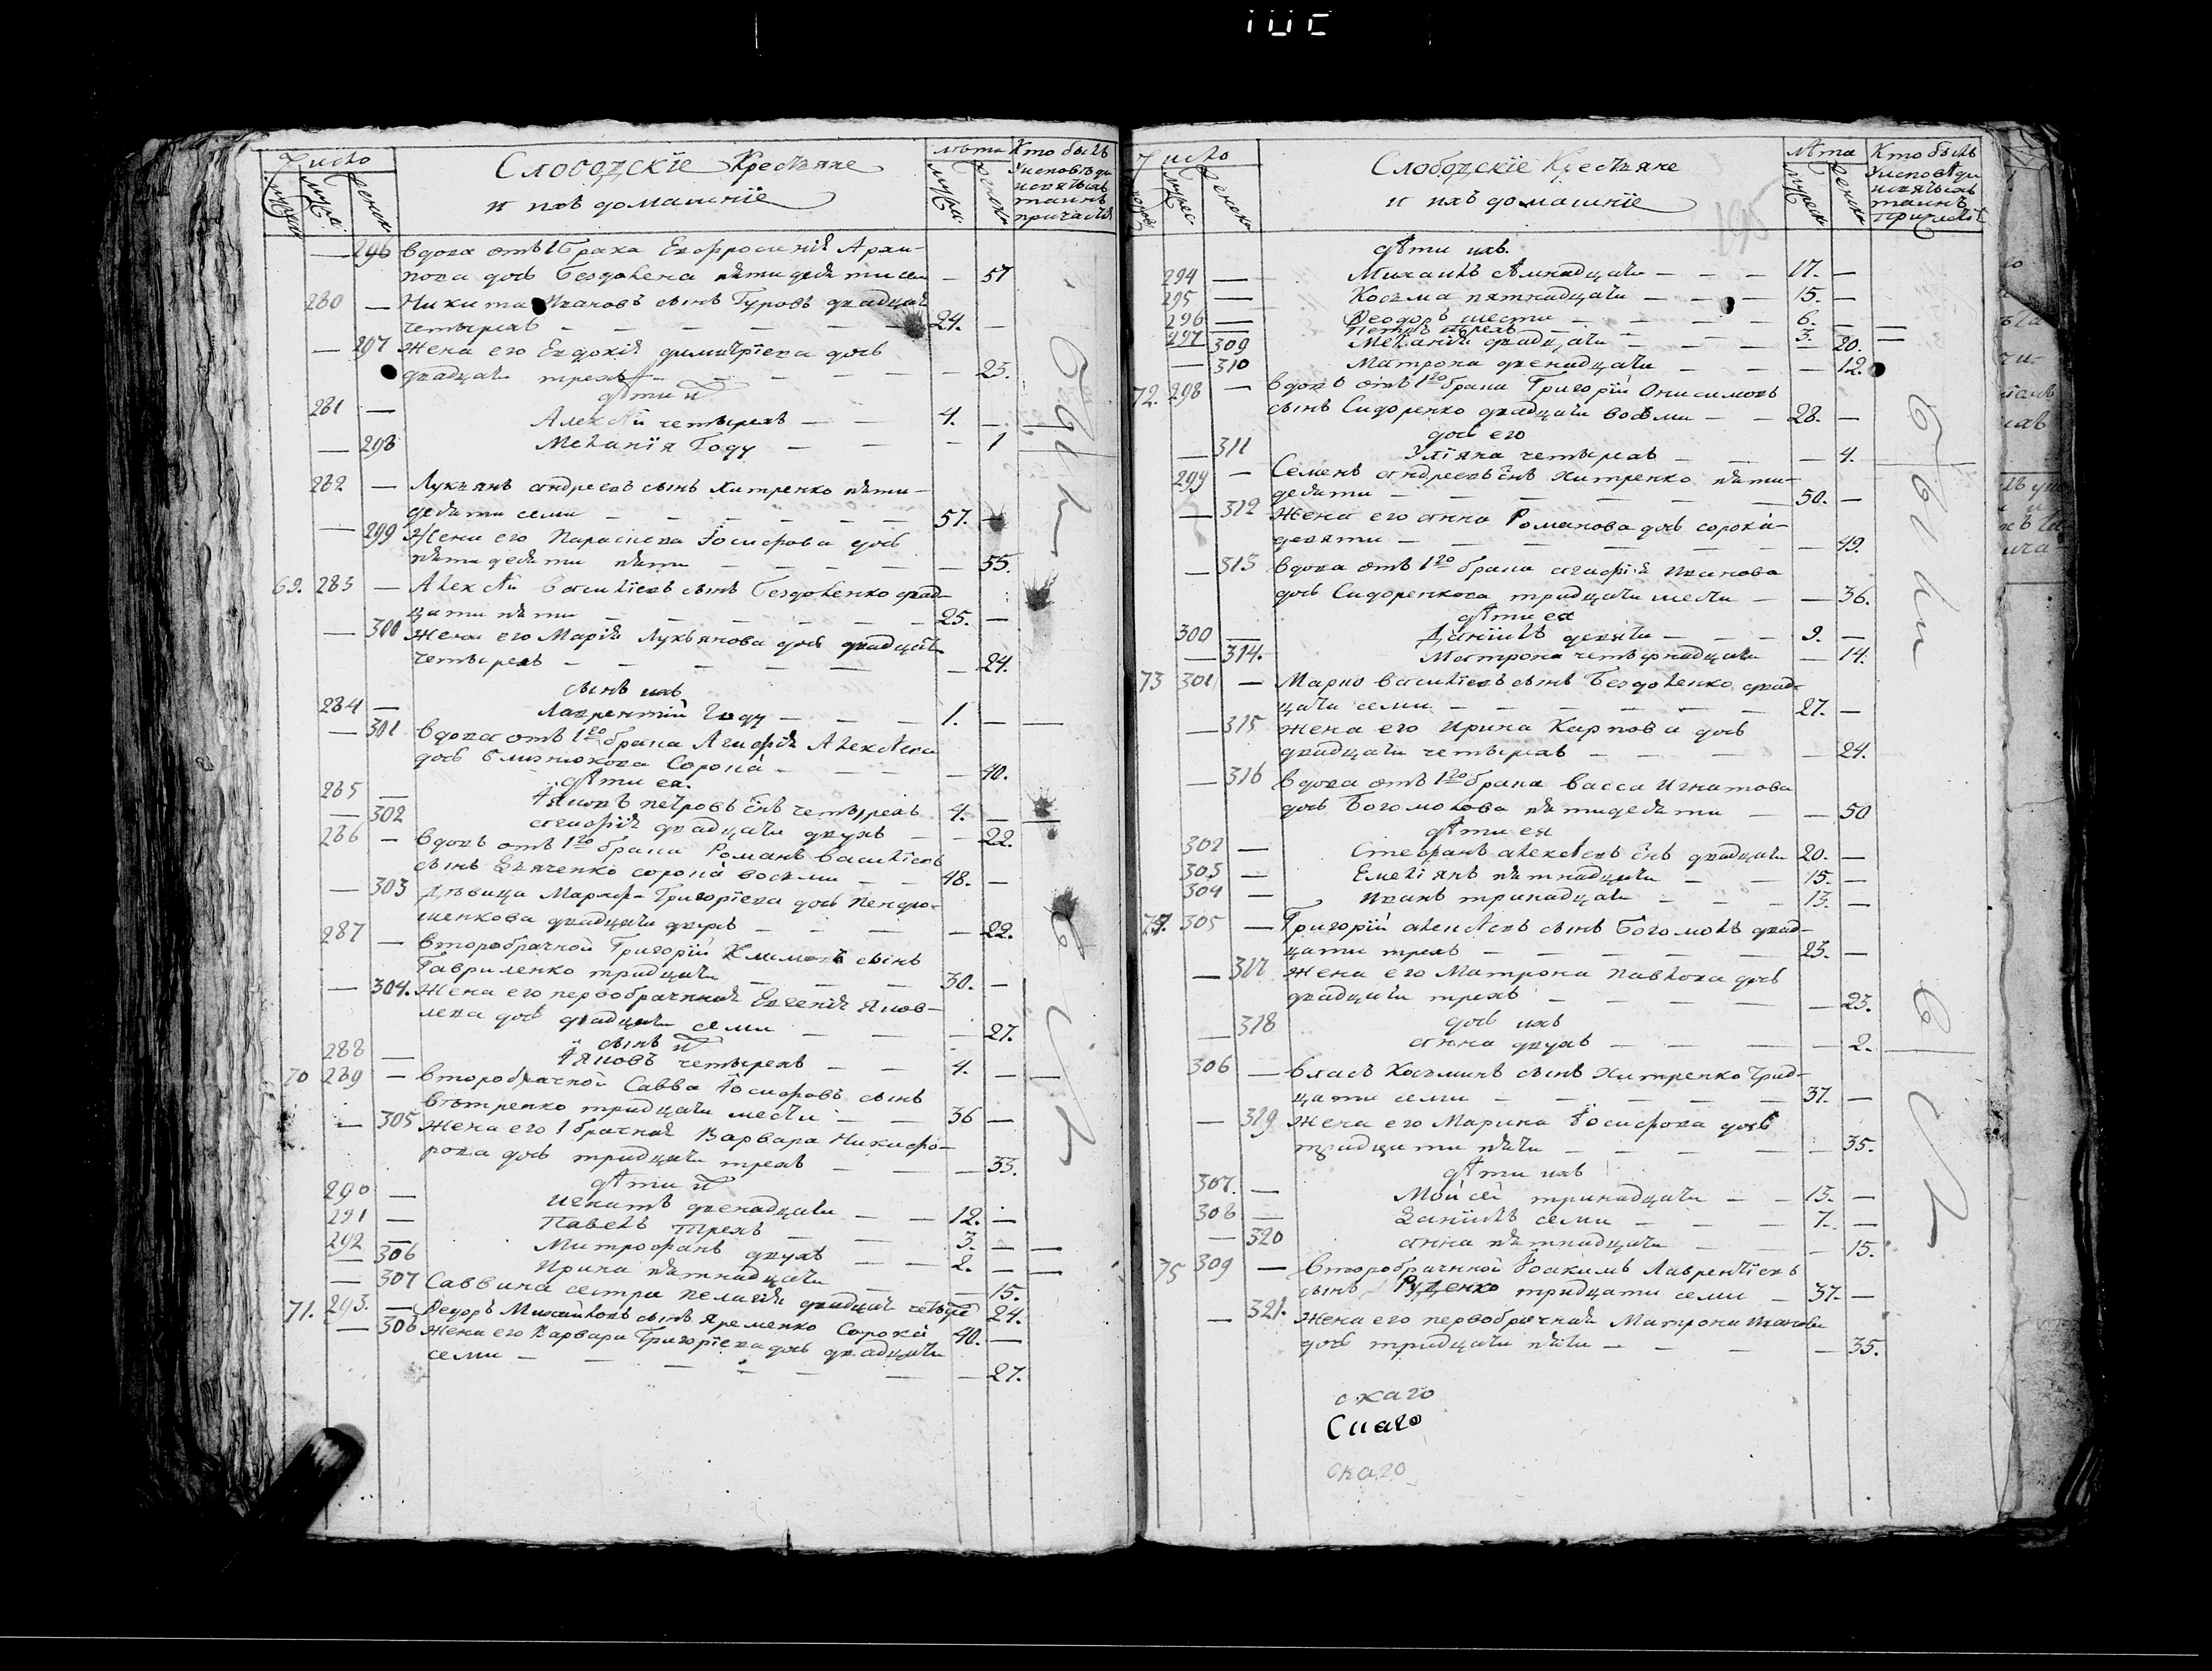 Число
Слободскіе Крестьяне
и ихъ домашніе
лѣта
Кто былъ
у исповѣди
и святыхъ
таинъ
причастія
296 вдова отъ 1 брака Евфросинія Архи-
пова дочь Бездолена пятидесяти семи — 57
280 — Никита Ивановъ сынъ Гуровъ двадцати
четырехъ — 24. —
— 297 Жена его Евдокія Димитріева дочь
двадцати трехъ — 23.
дѣти их
281 — Алексѣй четырехъ — 4. —
— 298 Меланія Году — 1
282 — Лукьянъ Андреевъ сынъ Хитренко пяти-
десяти семи — 57. —
— 299 Жена его Параскева Іосифова дочь
пятидесяти пяти — 55.
69. 283 — Алексѣй Василіевъ сынъ Бездоленко двад-
цати пяти — 25. —
— 300 Жена его Марія Лукьянова дочь двадцати
четырехъ — 24.
сынъ ихъ
284 — Лаврентій Году — 1. —
— 301 вдова отъ 1го брака Агафія Алексѣева
дочь Близнюкова Сорока — 40.
дѣти ея.
285 — Яковъ Петровъ снъ четырехъ 4. —
— 302 Агафія двадцати двухъ — 22.
286 — вдовъ отъ 1го брака Романъ Василіевъ
сынъ Дяченко сорока восьми — 48. —
— 303 Дѣвица Марфа Григоріева дочь
двадцати двухъ — 22.
287 — Второбрачной Григорій Климовъ сынъ
Гавриленко тридцати 30. —
— 304. Жена его первобрачная Евгенія Яков-
лева дочь двадцати семи — 27.
сынъ их
288 — Яковъ четырехъ — 4. —
70 289 — Второбрачной Савва Іосифовъ сынъ
Вѣтренко тридцати шести — 36 —
— 305 Жена его 1 брачная Варвара Никифо-
рова дочь тридцати трехъ — 33.
дѣти их
290 — Игнатъ двенадцати — 12. —
291 — Павелъ трехъ — 3. —
292 — Митрофанъ двухъ — 2. —
— 306 Ирина пятнадцати — 15.
— 307 Саввина сестра Пелагія двадцати четыре 24.
71. 293. — Ѳедоръ Михайловъ сынъ Яременко Сорока 40. —
— 308 Жена его Варвара Григоріева дочь двадцати
семи — 27.
были
Число
Слободскіе Крестьяне
и ихъ домашніе
лѣта
Кто былъ
у исповѣди
и святыхъ
таинъ
причастія
195
дѣти ихъ.
294 — Михаилъ семнадцати — 17. —
295 — Косьма пятнадцати — 15. —
296 — Ѳеодоръ шести — 6. —
297 — Петръ трехъ — 3. —
309 Меланія двадцати — 20.
— 310 Матрона двенадцати — 12.
72. 298 — вдовъ отъ 1го брака Григорій Онисимовъ
сынъ Сидоренко двадцати восьми — 28. —
дочь его
— 311 Уліяна четырехъ — 4.
299 — Семенъ Андреевъ снъ Хитренко пяти-
десяти — 50. —
— 312 Жена его Анна Романова дочь сорока-
девяти — 49.
— 313 вдова отъ 1го брака Агафія Иванова
дочь Сидоренкова тридцати шести — 36.
дѣти ея
300 — Даніилъ девяти — 9. —
— 314. Матрона четырнадцати — 14.
73 301 — Марко Василіевъ сынъ Бездоленко двад-
цати семи — 27. —
— 315 жена его Ирина Карпова дочь
двадцати четырехъ — 24.
— 316 вдова отъ 1го брака Васса Игнатова
дочь Богомолова пятидесяти — 50
дѣти ея
302 — Стефанъ Алексѣевъ снъ двадцати 20. —
303 — Емеліянъ пятнадцати — 15. —
304 — Иванъ тринадцати — 13. —
74. 305 — Григорій Алексѣевъ сынъ Богомолъ двад-
цати трехъ — 23. —
— 317 жена его Матрона Павлова дочь
двадцати трехъ — 23.
дочь ихъ
— 318 Анна двухъ — 2.
306 — Власъ Косьминъ сынъ Хитренко трид-
цати семи — 37. —
— 319 Жена его Марина Іосифова дочь
тридцати пяти — 35.
дѣти ихъ
307. — Мойсей тринадцати — 13. —
308 — Даніилъ семи — 7. —
— 320 Анна пятнадцати — 15.
75 309 — Второбрачной Іоакимъ Лаврентіевъ
сынъ Руденко тридцати семи — 37. —
— 321. Жена его первобрачная Матрона Иванова
дочь тридцати пяти — 35.
скаго
Скаго
скаго
были